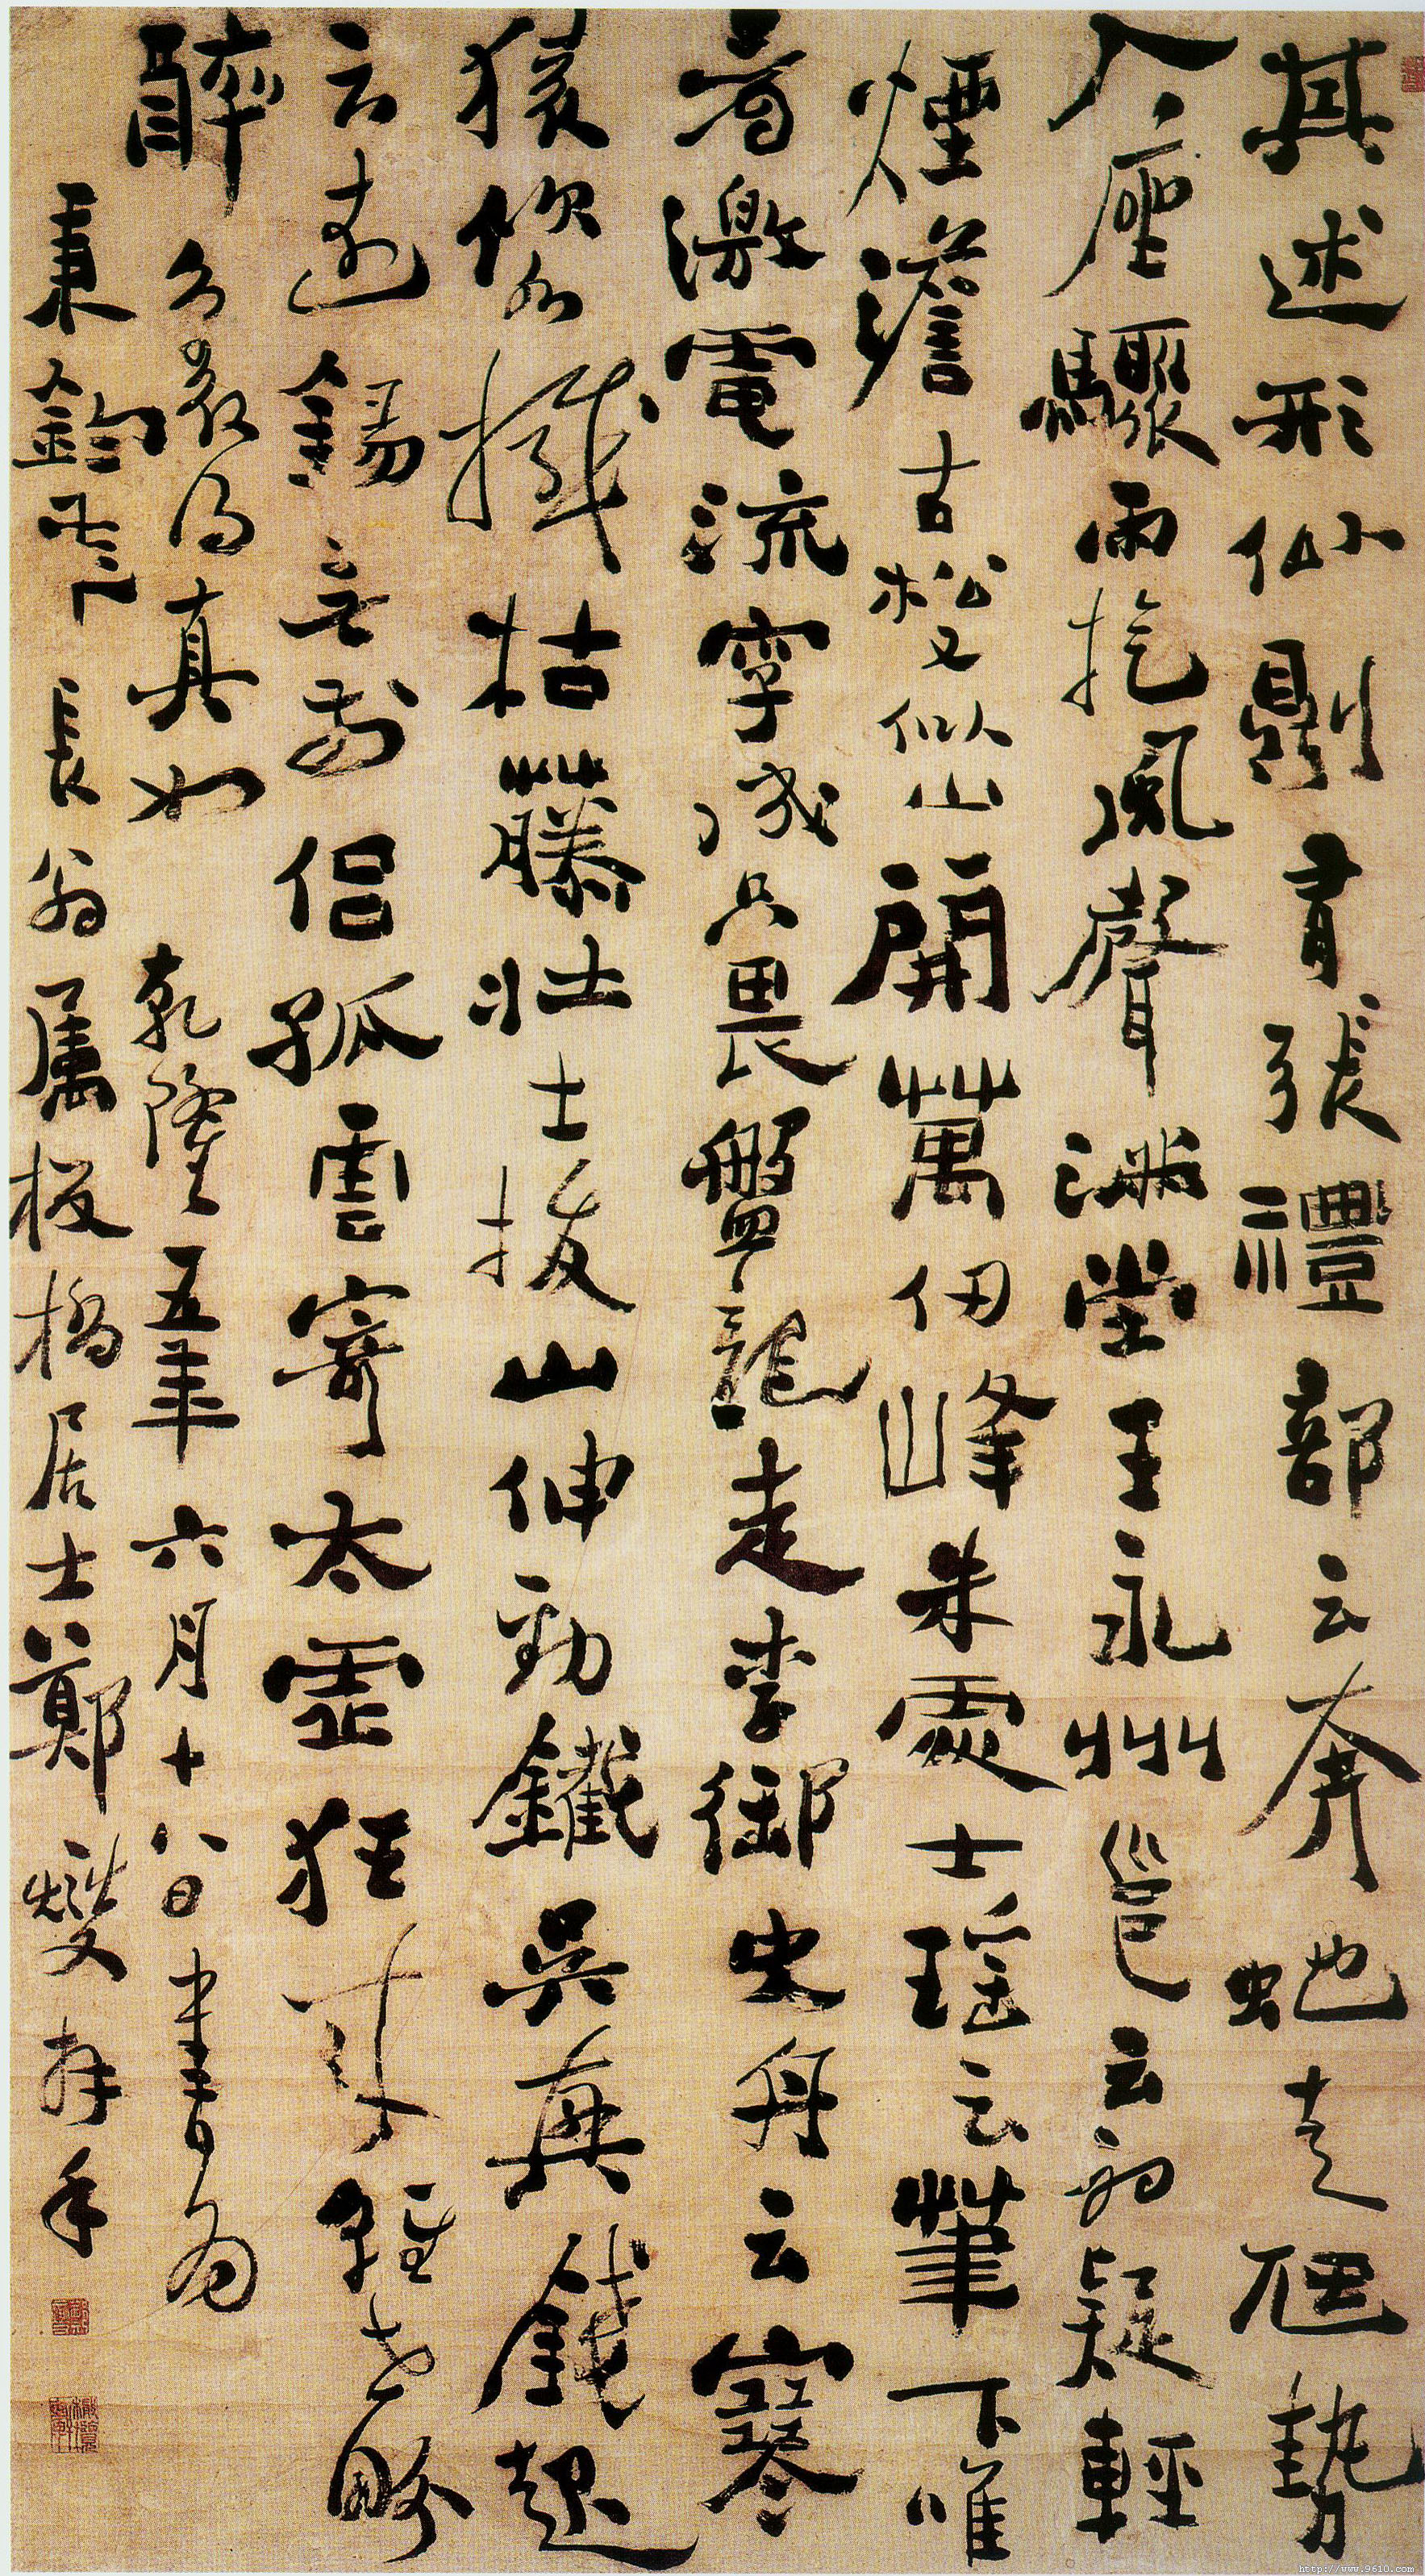 其述形似則有張禮部云奔蛇走虺勢
入座驟雨旋風聲滿堂王永州邕云初疑輕
煙澹古松又似山開萬仞峰朱處士瑤云筆下唯
看激電流字成只畏盤龍走李御史舟云寒
猿飲水撼枯藤壯士拔山伸勁鐵吳興錢起
云遠錫無前侶孤雲寄太虛狂來輕世界
醉裏得真如 乾隆五年六月十八日書為
秉鈞 長翁属板橋居士鄭燮拜手
http://www.9610.com